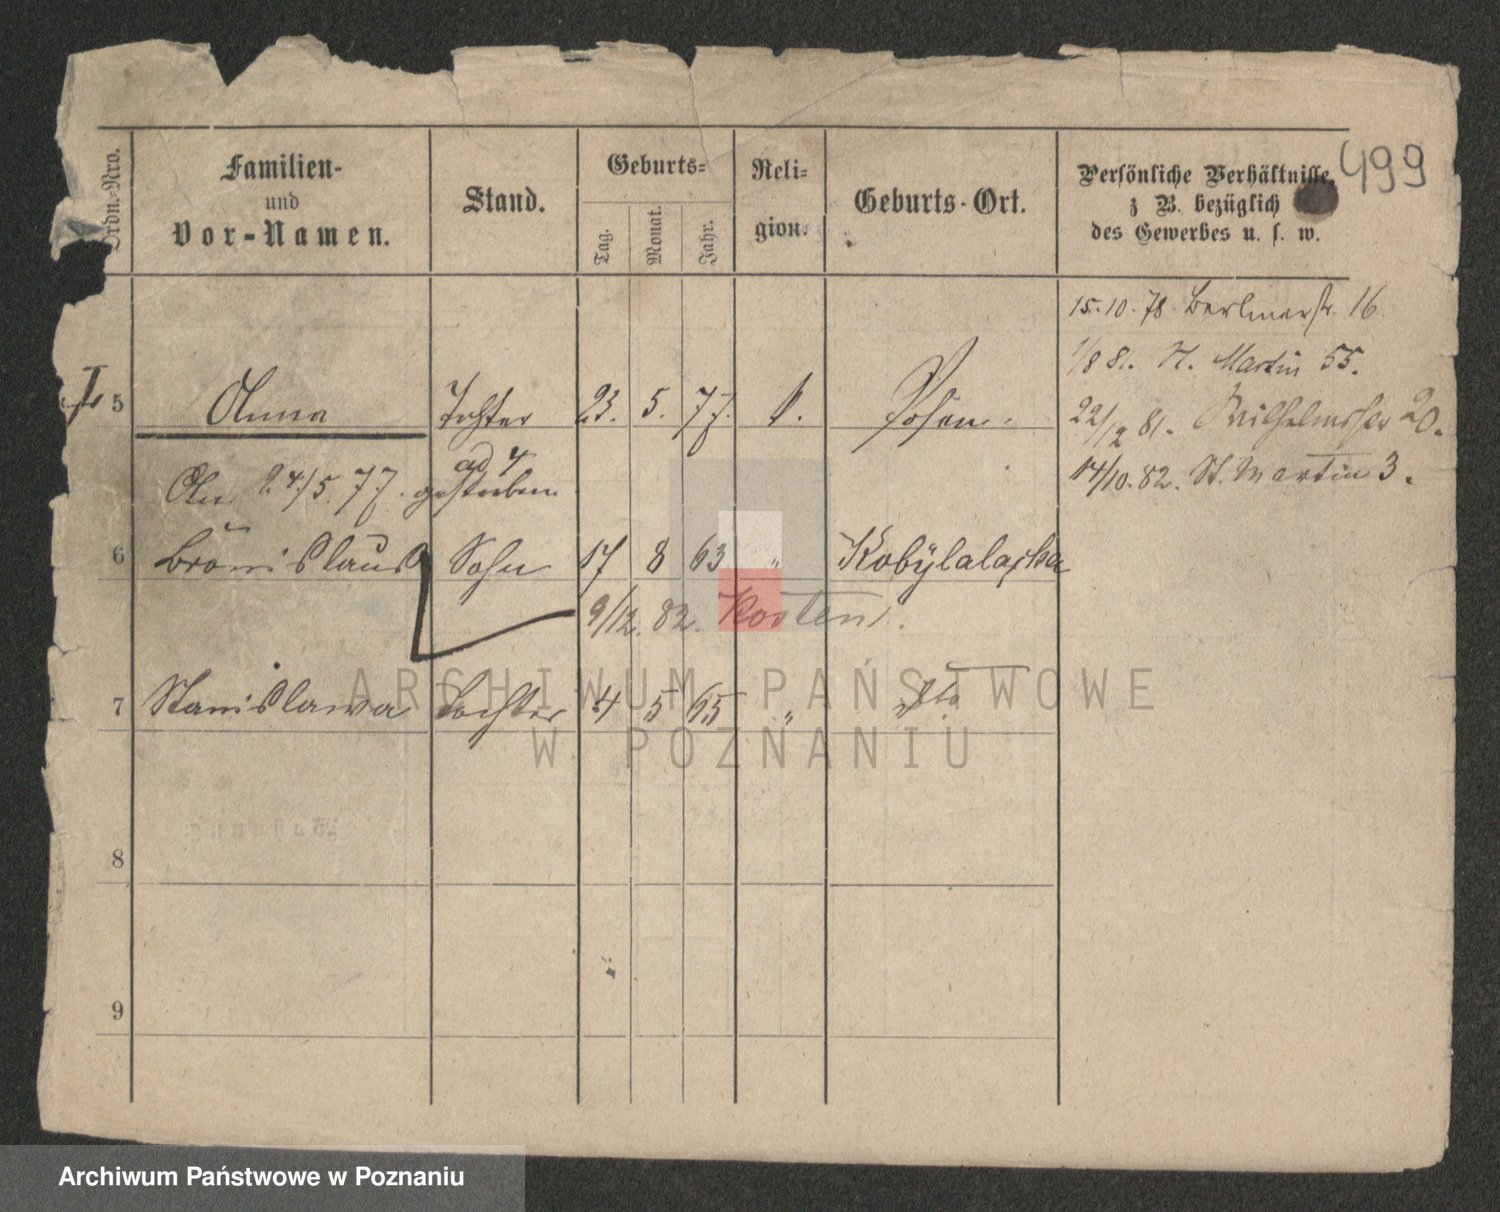 499
Ordn.-Nro.
Familien- und Vor-Namen.
Stand.
Geburts-
Tag. Monat. Jahr.
Reli-
gion.
Geburts-Ort.
Persönliche Verhältnisse
z B. bezüglich
des Gewerbes u. s. w.
15.10.78. Berlinerstr. 16.
1/8 81. St. Martin 55.
22/12 81. Wilhelmstr 20.
14/10.82. St. Martin 3.
5 Anna Tochter 23. 5. 77. k. Posen.
ad 4
24/5. 77. gestorben
6 Bronislaus Sohn 17 8 63 " Kobylalaska
9/12. 82. Kosten.
7 Stanislawa Tochter 4 5 65 " dto
8
9
ARCHIWUM PAŃSTWOWE
W POZNANIU
Archiwum Państwowe w Poznaniu